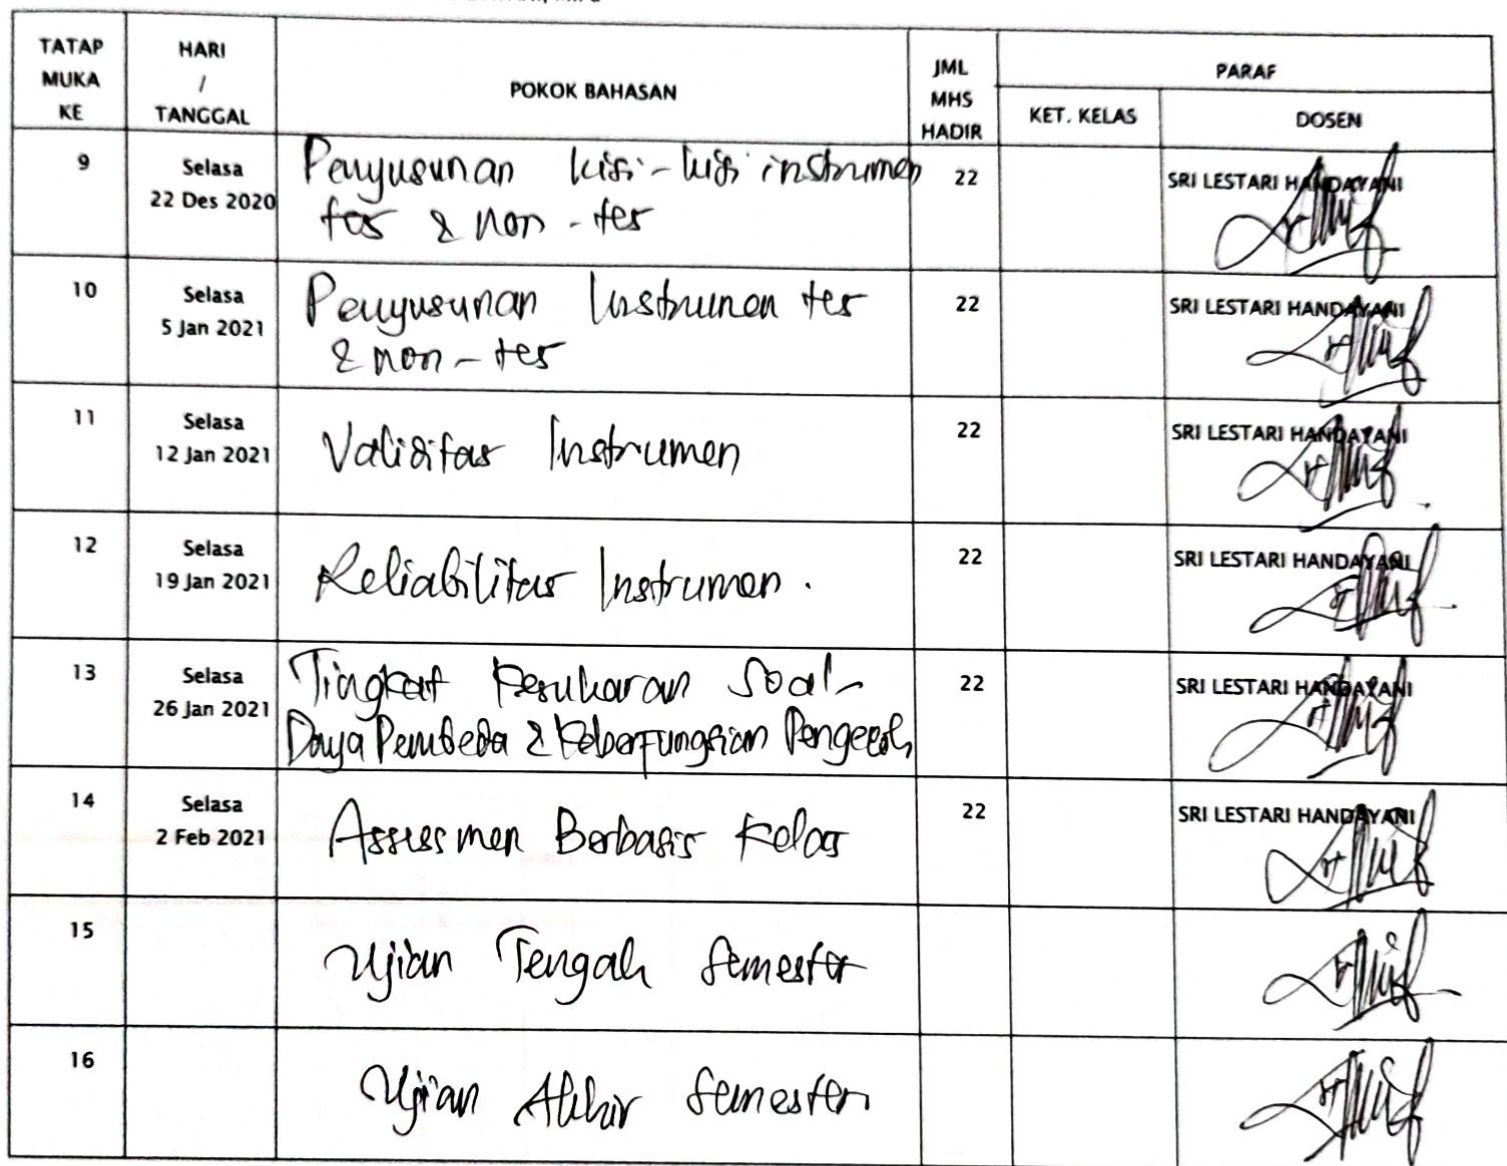 TATAP MUKA KE
HARI / TANGGAL
POKOK BAHASAN
JML MHS HADIR
PARAF
KET. KELAS
DOSEN
9
Selasa
22 Des 2020
Penyusunan kisi-kisi instrumen
tes & non-tes
22
SRI LESTARI HANDAYANI
10
Selasa
5 Jan 2021
Penyusunan Instrumen tes
& non-tes
22
SRI LESTARI HANDAYANI
11
Selasa
12 Jan 2021
Validitas Instrumen
22
SRI LESTARI HANDAYANI
12
Selasa
19 Jan 2021
Reliabilitas Instrumen.
22
SRI LESTARI HANDAYANI
13
Selasa
26 Jan 2021
Tingkat Kesukaran Soal-
Daya Pembeda & Keberfungsian Pengecoh
22
SRI LESTARI HANDAYANI
14
Selasa
2 Feb 2021
Assessmen Berbasis Kelas
22
SRI LESTARI HANDAYANI
15
Ujian Tengah Semester
16
Ujian Akhir Semester